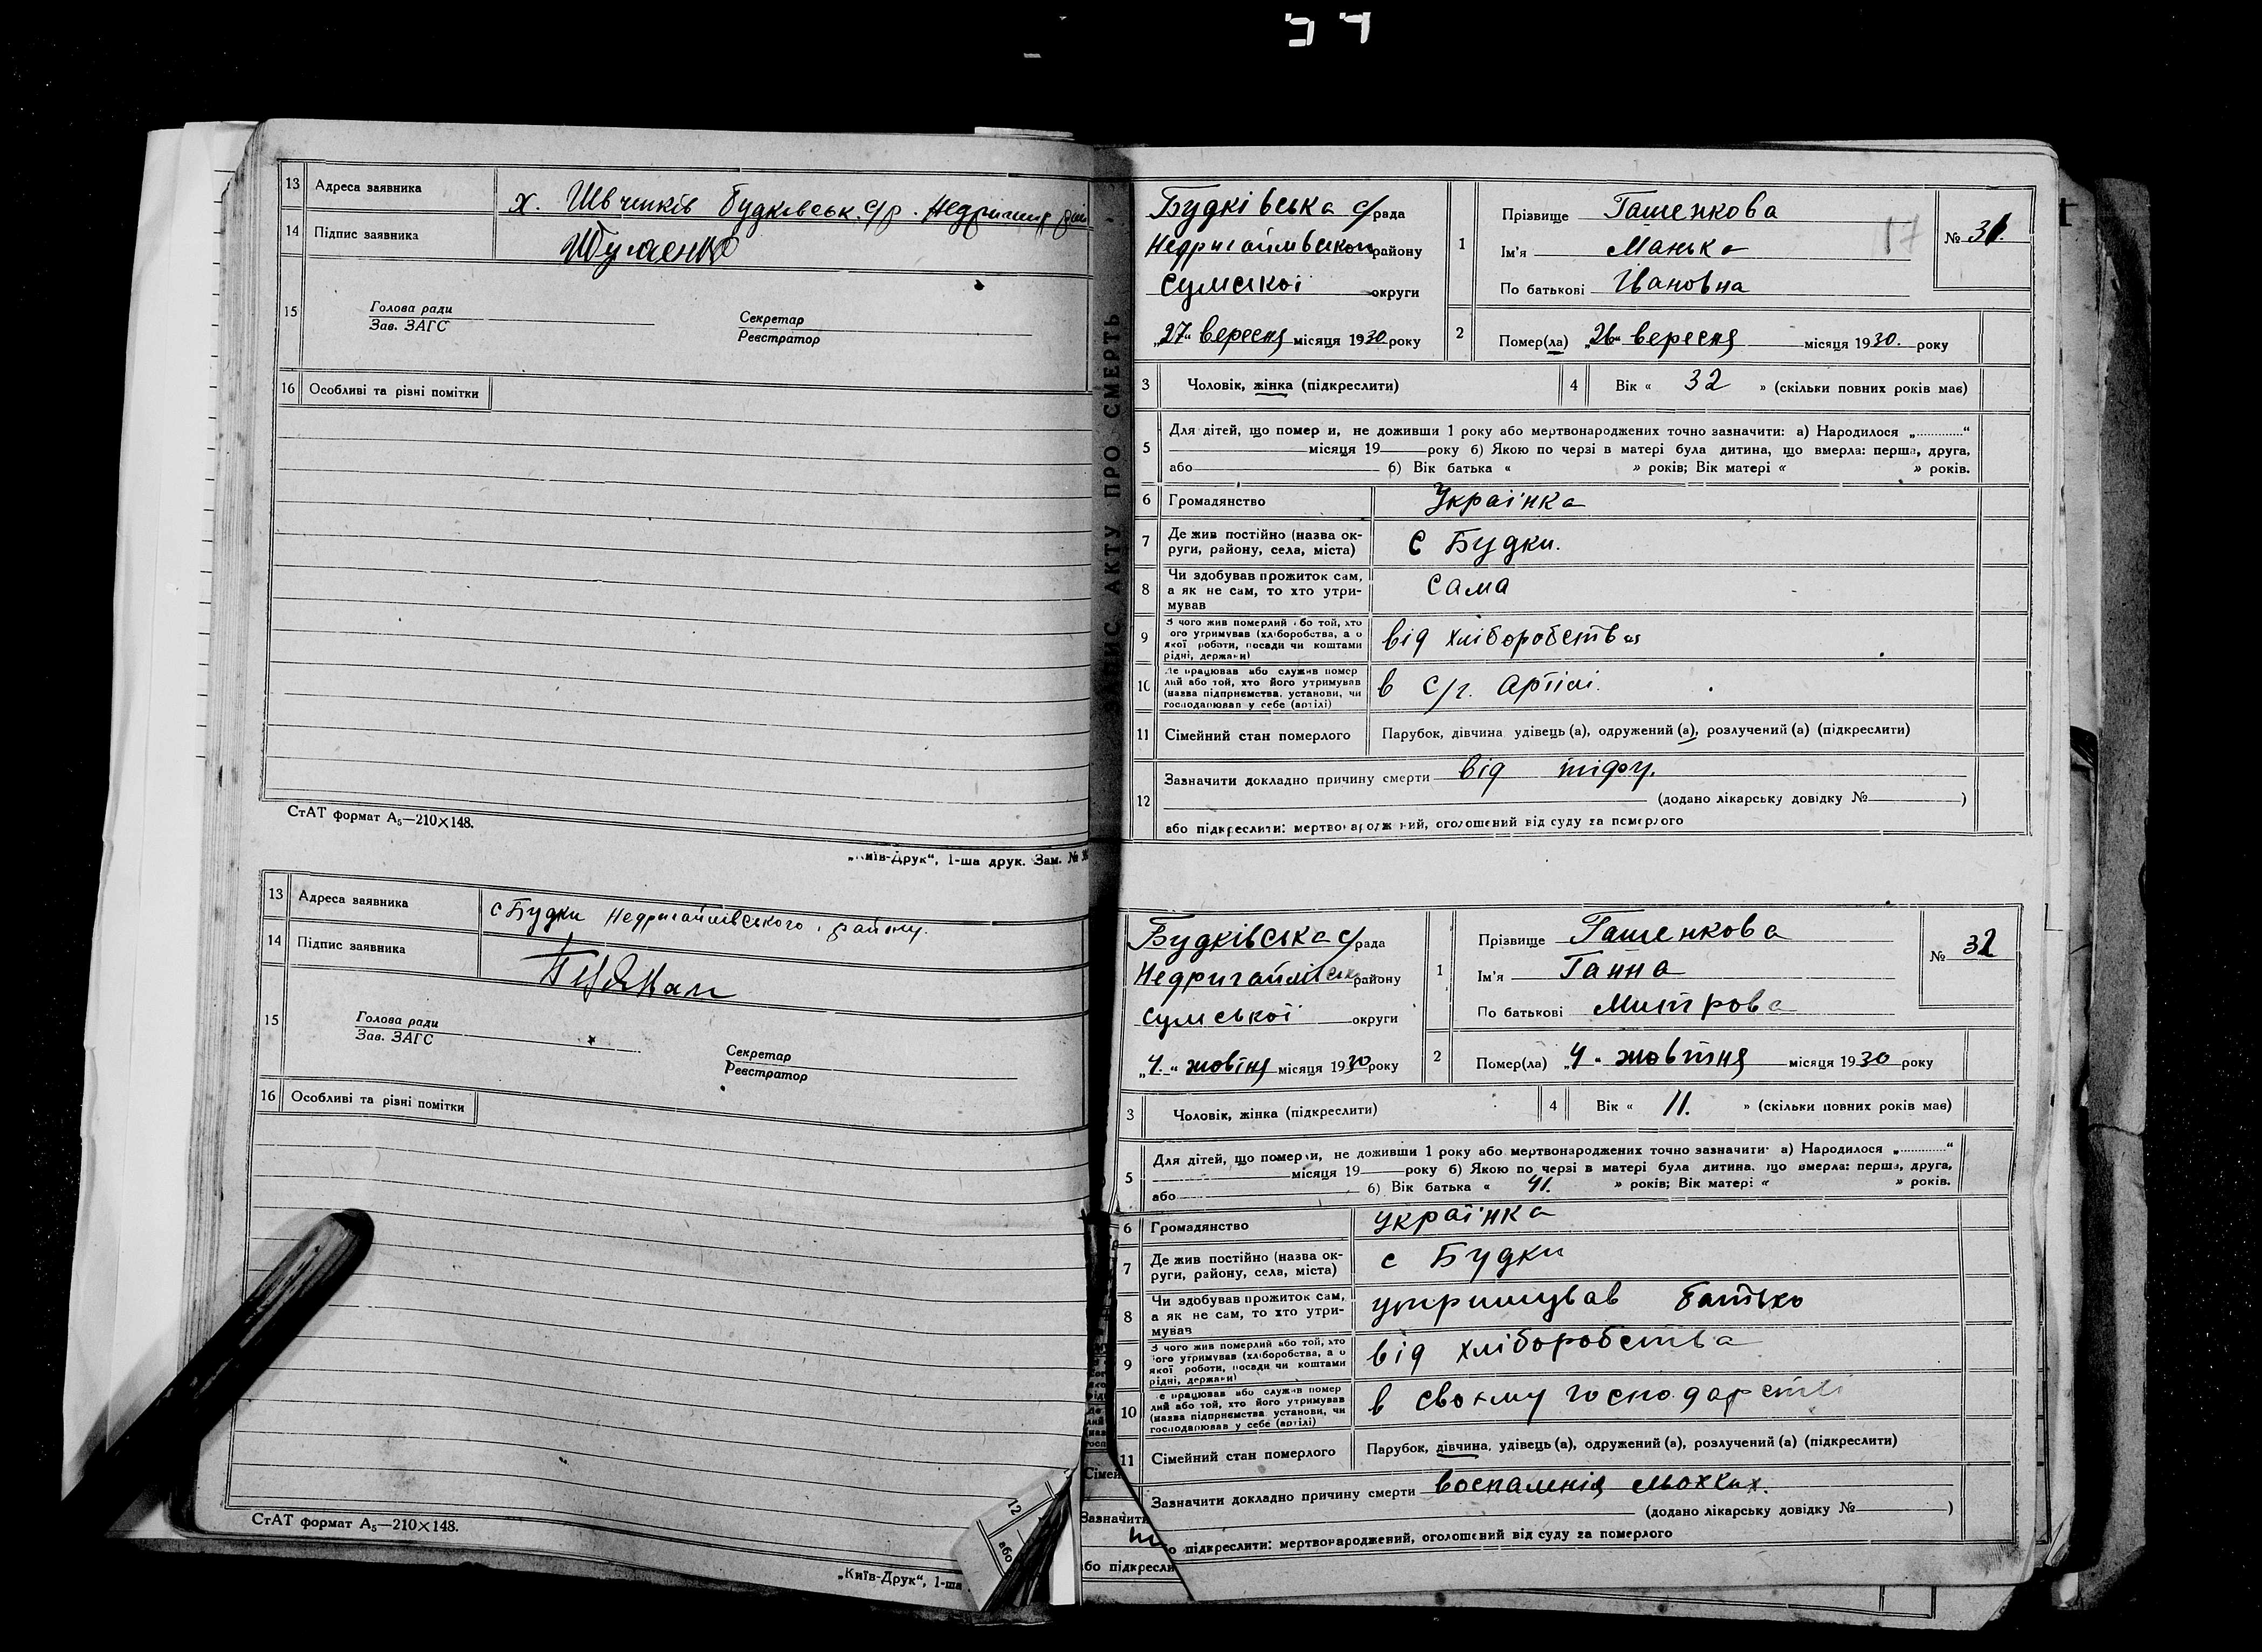 13 Адреса заявника х. Швченків Будковськ. с/р.
14 Підпис заявника
15 Голова ради
Зав. ЗАГС
Секретар
Реєстратор
16 Особливі та різні помітки
СтАТ формат А₅—210×148.
„Київ-Друк“, 1-ша друк. Зам. №
13 Адреса заявника с Будки Недригайлівського району.
14 Підпис заявника
15 Голова ради
Зав. ЗАГС
Секретар
Реєстратор
16 Особливі та різні помітки
СтАТ формат А₅—210×148.
„Київ-Друк“, 1-ша
ЗАПИС АКТУ ПРО СМЕРТЬ
Будківська с/рада
Недригайлівської району
Сумської округи
„27“ вересня місяця 1930 року
1 Прізвище Гашенкова
Ім'я Манька
По батькові Івановна
17
№ 31.
2 Помер(ла) „26“ вересня місяця 1930. року
3 Чоловік, жінка (підкреслити)
4 Вік « 32 » (скільки повних років має)
5 Для дітей, що помер и, не доживши 1 року або мертвонароджених точно зазначити: а) Народилося „.............“
місяця 19 року б) Якою по черзі в матері була дитина, що вмерла: перша, друга,
або б) Вік батька « » років; Вік матері « » років.
6 Громадянство Украінка
7 Де жив постійно (назва ок-
руги, району, села, міста) с Будки.
8 Чи здобував прожиток сам,
а як не сам, то хто утри-
мував сама
9 З чого жив померлий або той, хто
ого утримував (хліборобства, а о
якої роботи, посади чи коштами
рідні, держави) від хліборобства
10 Де працював або служив помер
лий або той, хто його утримував
(назва підприємства, установи, чи
господарював у себе (артілі) в с/г. Артілі.
11 Сімейний стан померлого Парубок, дівчина удівець (а), одружений (а), розлучений (а) (підкреслити)
12 Зазначити докладно причину смерти від тифу.
(додано лікарську довідку № )
або підкреслити: мертвонароджений, оголошений від суду за померлого
Будківська с/рада
Недригайлівськ району
Сумської округи
„4.“ жовтня місяця 1930 року
1 Прізвище Гашенкова
Ім'я Ганна
По батькові Митрова
№ 32
2 Помер(ла) „4“ жовтня місяця 1930 року
3 Чоловік, жінка (підкреслити)
4 Вік « 11. » (скільки повних років має)
5 Для дітей, що померли, не доживши 1 року або мертвонароджених точно зазначити: а) Народилося „............“
місяця 19 року б) Якою по черзі в матері була дитина, що вмерла: перша, друга,
або б) Вік батька « 41. » років; Вік матері « » років.
6 Громадянство украінка
7 Де жив постійно (назва ок-
руги, району, села, міста) с Будки
8 Чи здобував прожиток сам,
а як не сам, то хто утри-
мував утримував батько
9 З чого жив померлий або той, хто
ого утримував (хліборобства, а о
якої роботи, посади чи коштами
рідні, держави) від хліборобства
10 е працював або служив помер
лий або той, хто його утримував
(назва підприємства, установи, чи
господарював у себе (артілі) в своєму господарстві
11 Сімейний стан померлого Парубок, дівчина, удівець (а), одружений (а), розлучений (а) (підкреслити)
Зазначити докладно причину смерти воспаленія льохких.
(додано лікарську довідку № )
о підкреслити: мертвонароджений, оголошений від суду за померлого
12
або
Сімей
Зазначити
або підкресли